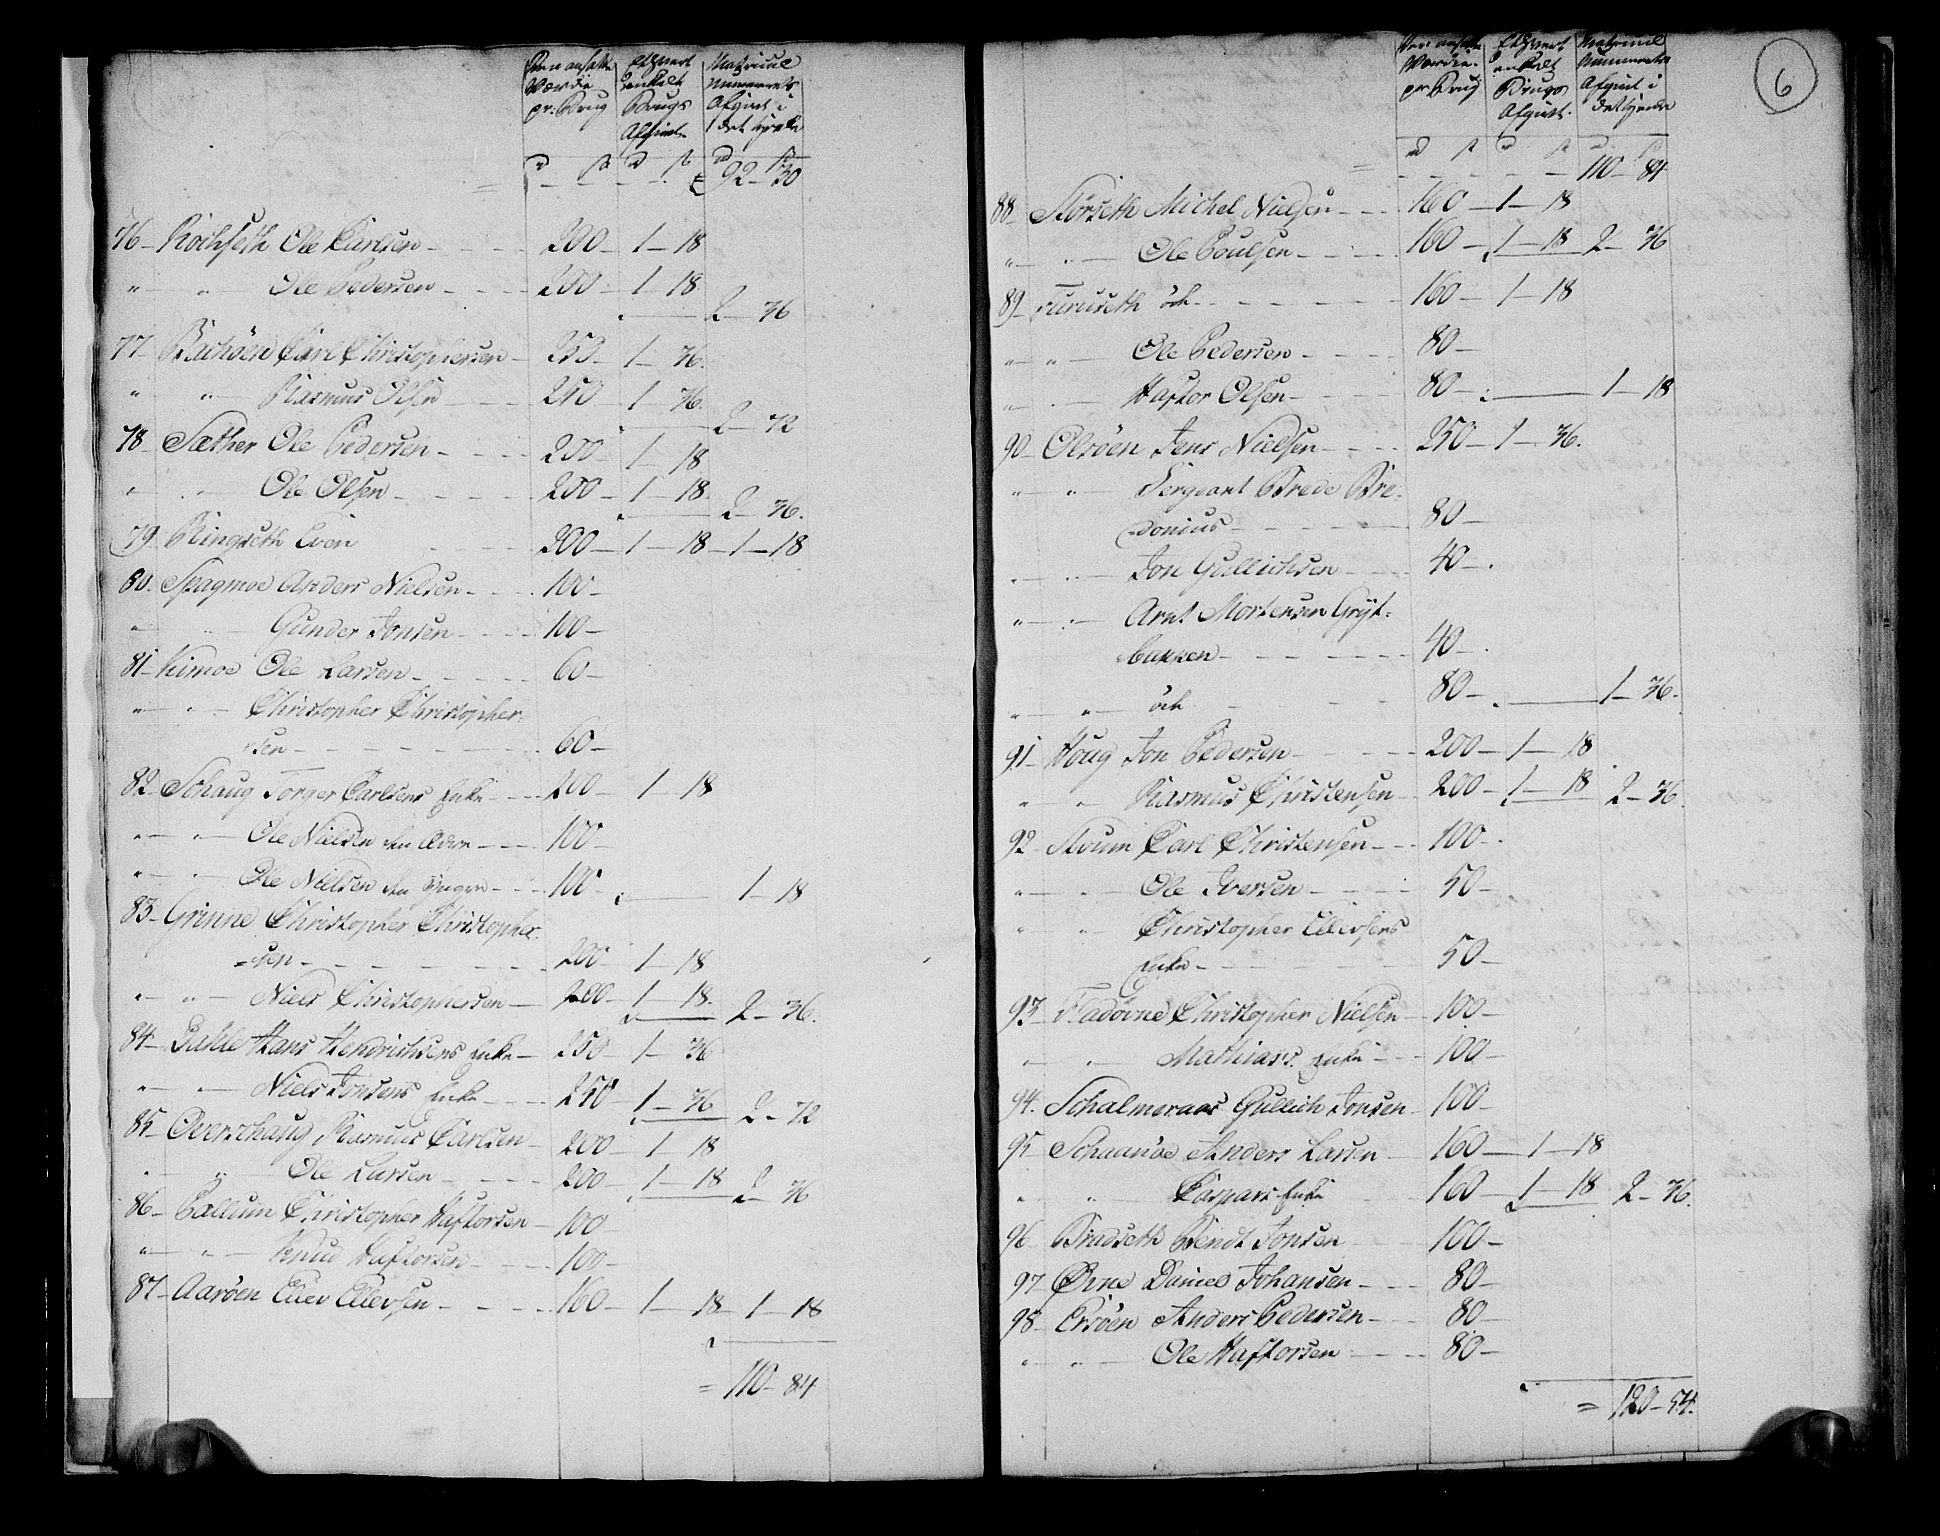 Den ansatte Værdie pr. Brug
Ethvert enkelt Brugs Afgivt
Matricul Nummerets Afgivt i det heele
92 - 30
76 - Rochseth Ole Carlsen - 200 - 1 - 18
" " Ole Pedersen - 200 - 1 - 18
2 - 36
77 - Bachöen Carl Christophersen - 250 - 1 - 36.
" " Rasmus Olsen - 250 - 1 - 36
2 - 72
78 - Sæther Ole Pedersen - 200 - 1 - 18
" " Ole Olsen - 200 - 1 - 18
2 - 36.
79 - Ringseth Even - 200 - 1 - 18 - 1 - 18
80. Spagmoe Anders Nielsen - 100 -
" " Gunder Jonsen - 100 -
81 - Kimoe Ole Larsen - 60 -
" " Christopher Christopher-
sen - 60 -
82 - Schaug Torger Carlsens Enke - 200 - 1 - 18
" " Ole Nielsen den Ældre - 100 -
" " Ole Nielsen den Yngre - 100 - 1 - 18
83 - Grinne Christopher Christopher-
=sen - 200 - 1 - 18
" " Niels Christophersen - 200 - 1 - 18. 2 - 36.
84 - Dahle Hans Hendrichsens Enke - 250 - 1 - 36
" " Niels Jonsens Enke - 250 - 1 - 36 2 - 72
85 - Overschaug Rasmus Carlsen - 200 - 1 - 18
" " Ole Larsen - 200 - 1 - 18 2 - 36
86 - Pallum Christopher Haftorsen - 100 -
" " Knud Haftorsen - 100 -
87 - Aaröen Ellev Ellevsen - 160 - 1 - 18 - 1 - 18
= 110 - 84
6
Den ansatte Værdie pr Brug
Ethvert enkelt Brugs Afgivt.
Matricul Nummerets Afgivt i det heele
110 - 84
88 - Störseth Michel Nielsen - 160 - 1 - 18
" " Ole Poulsen - 160 - 1 - 18 2 - 36
89 - Furuseth öde - 160 - 1 - 18
" " Ole Pedersen - 80 -
" " Haftor Olsen - 80 - 1 - 18
90 - Olsöen Jens Nielsen - 250 - 1 - 36.
" " Sergeant Brede Bre-
donius - 80 -
" " Jon Gullichsen - 40 -
" " Arnt Mortensen Gryt-
bakken - 40 -
" " öde - 80 - 1 - 36.
91 - Houg Jon Pedersen - 200 - 1 - 18
" " Rasmus Christensen - 200 - 1 - 18 2 - 36.
92 - Stvum Carl Christensen - 100 -
" " Ole Iversen - 50 -
" " Christopher Ellevsens
Enke - 50 -
93 - Fladövne Christopher Nielsen - 100 -
" " Mathias's Enke - 100 -
94. Schalmeraas Gullich Jonsen - 100 -
95 - Schaanöe Anders Larsen - 160 - 1 - 18
" " Caspars Enke - 160 - 1 - 18 2 - 36.
96 - Bradseth Bendt Jonsen - 100 -
97 - Örne Daniel Johansen - 80 -
98 - Ersöen Anders Pedersen - 80 -
" " Ole Haftorsen - 80 -
= 120 - 54.